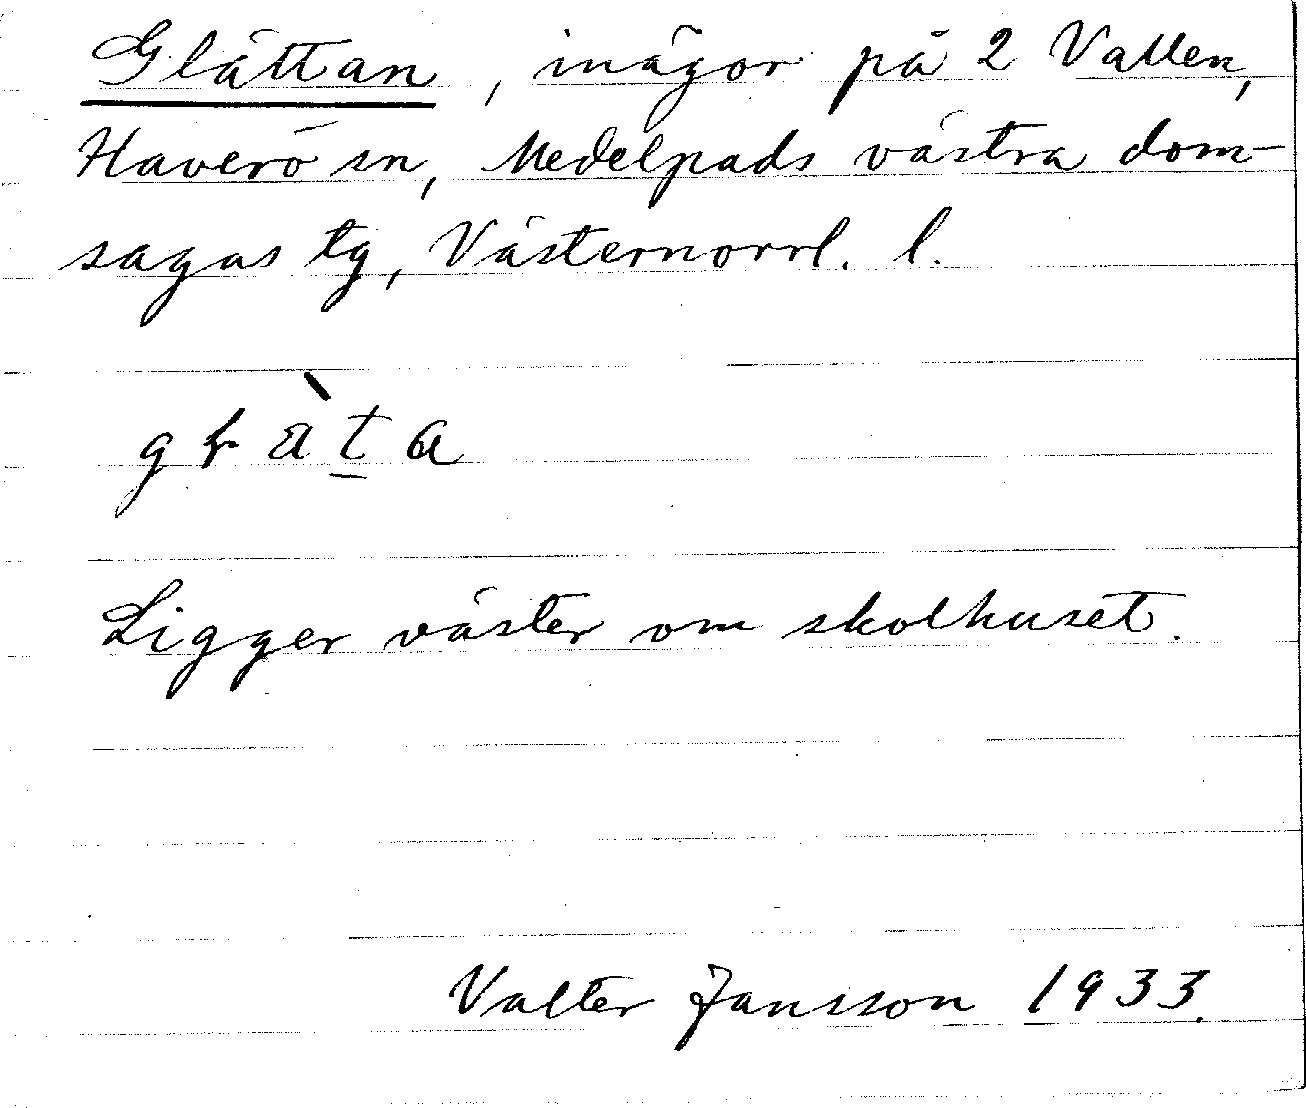 Glättan, inägor på 2 Vallen,
Haverö sn, Medelpads västra dom-
sagas tg, Västernorrl. l.
Ligger väster om skolhuset.
Valter Jansson 1933.